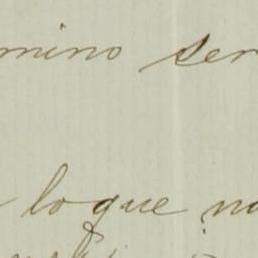 mino ser
loque no